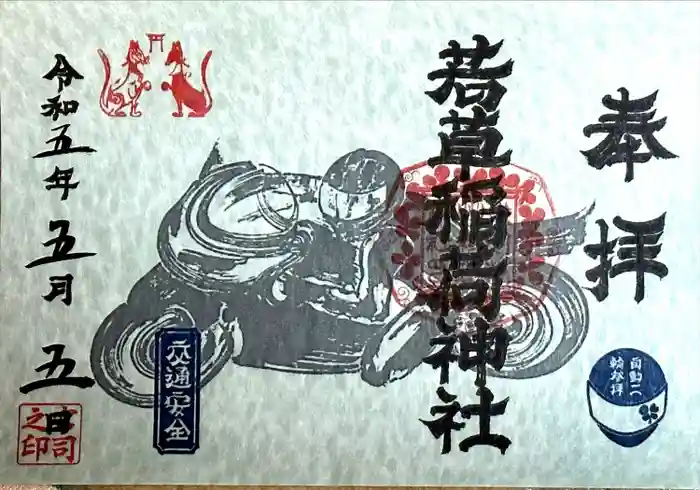 奉拝
若草稲荷神社
令和五年五月五日
交通安全
自動二
輪参拝
宮司
之印